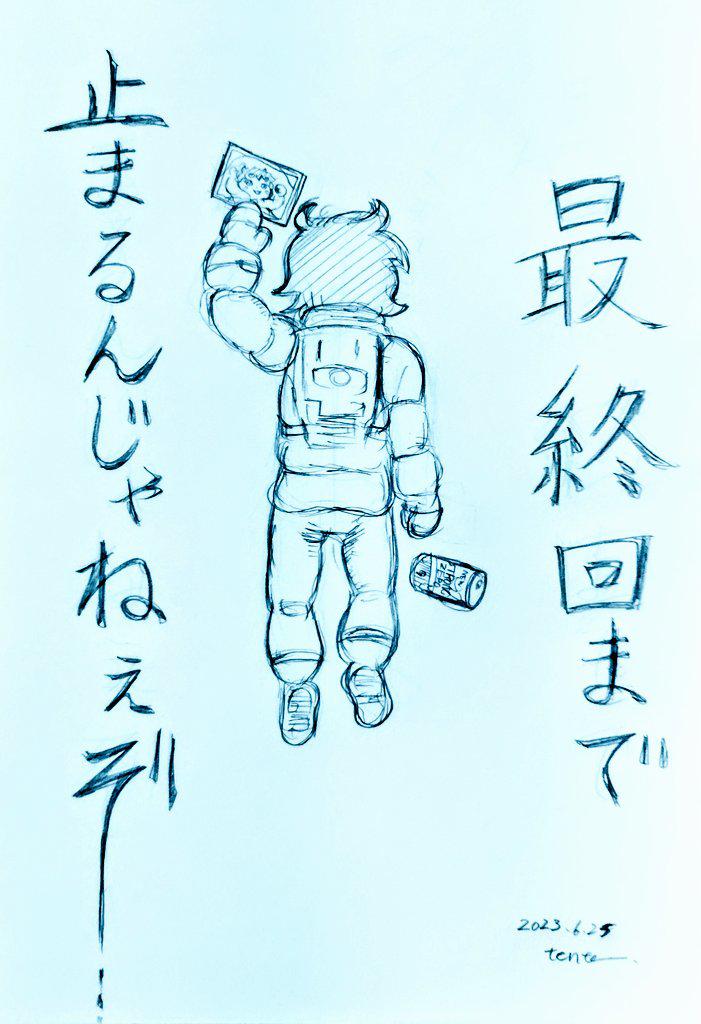 最終回まで
止まるんじゃねぇぞ…
2023.6.25
tente